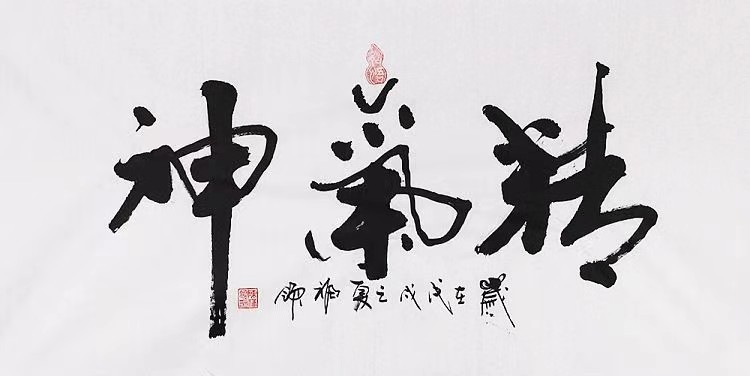 精氣神
歲在戊戌之夏